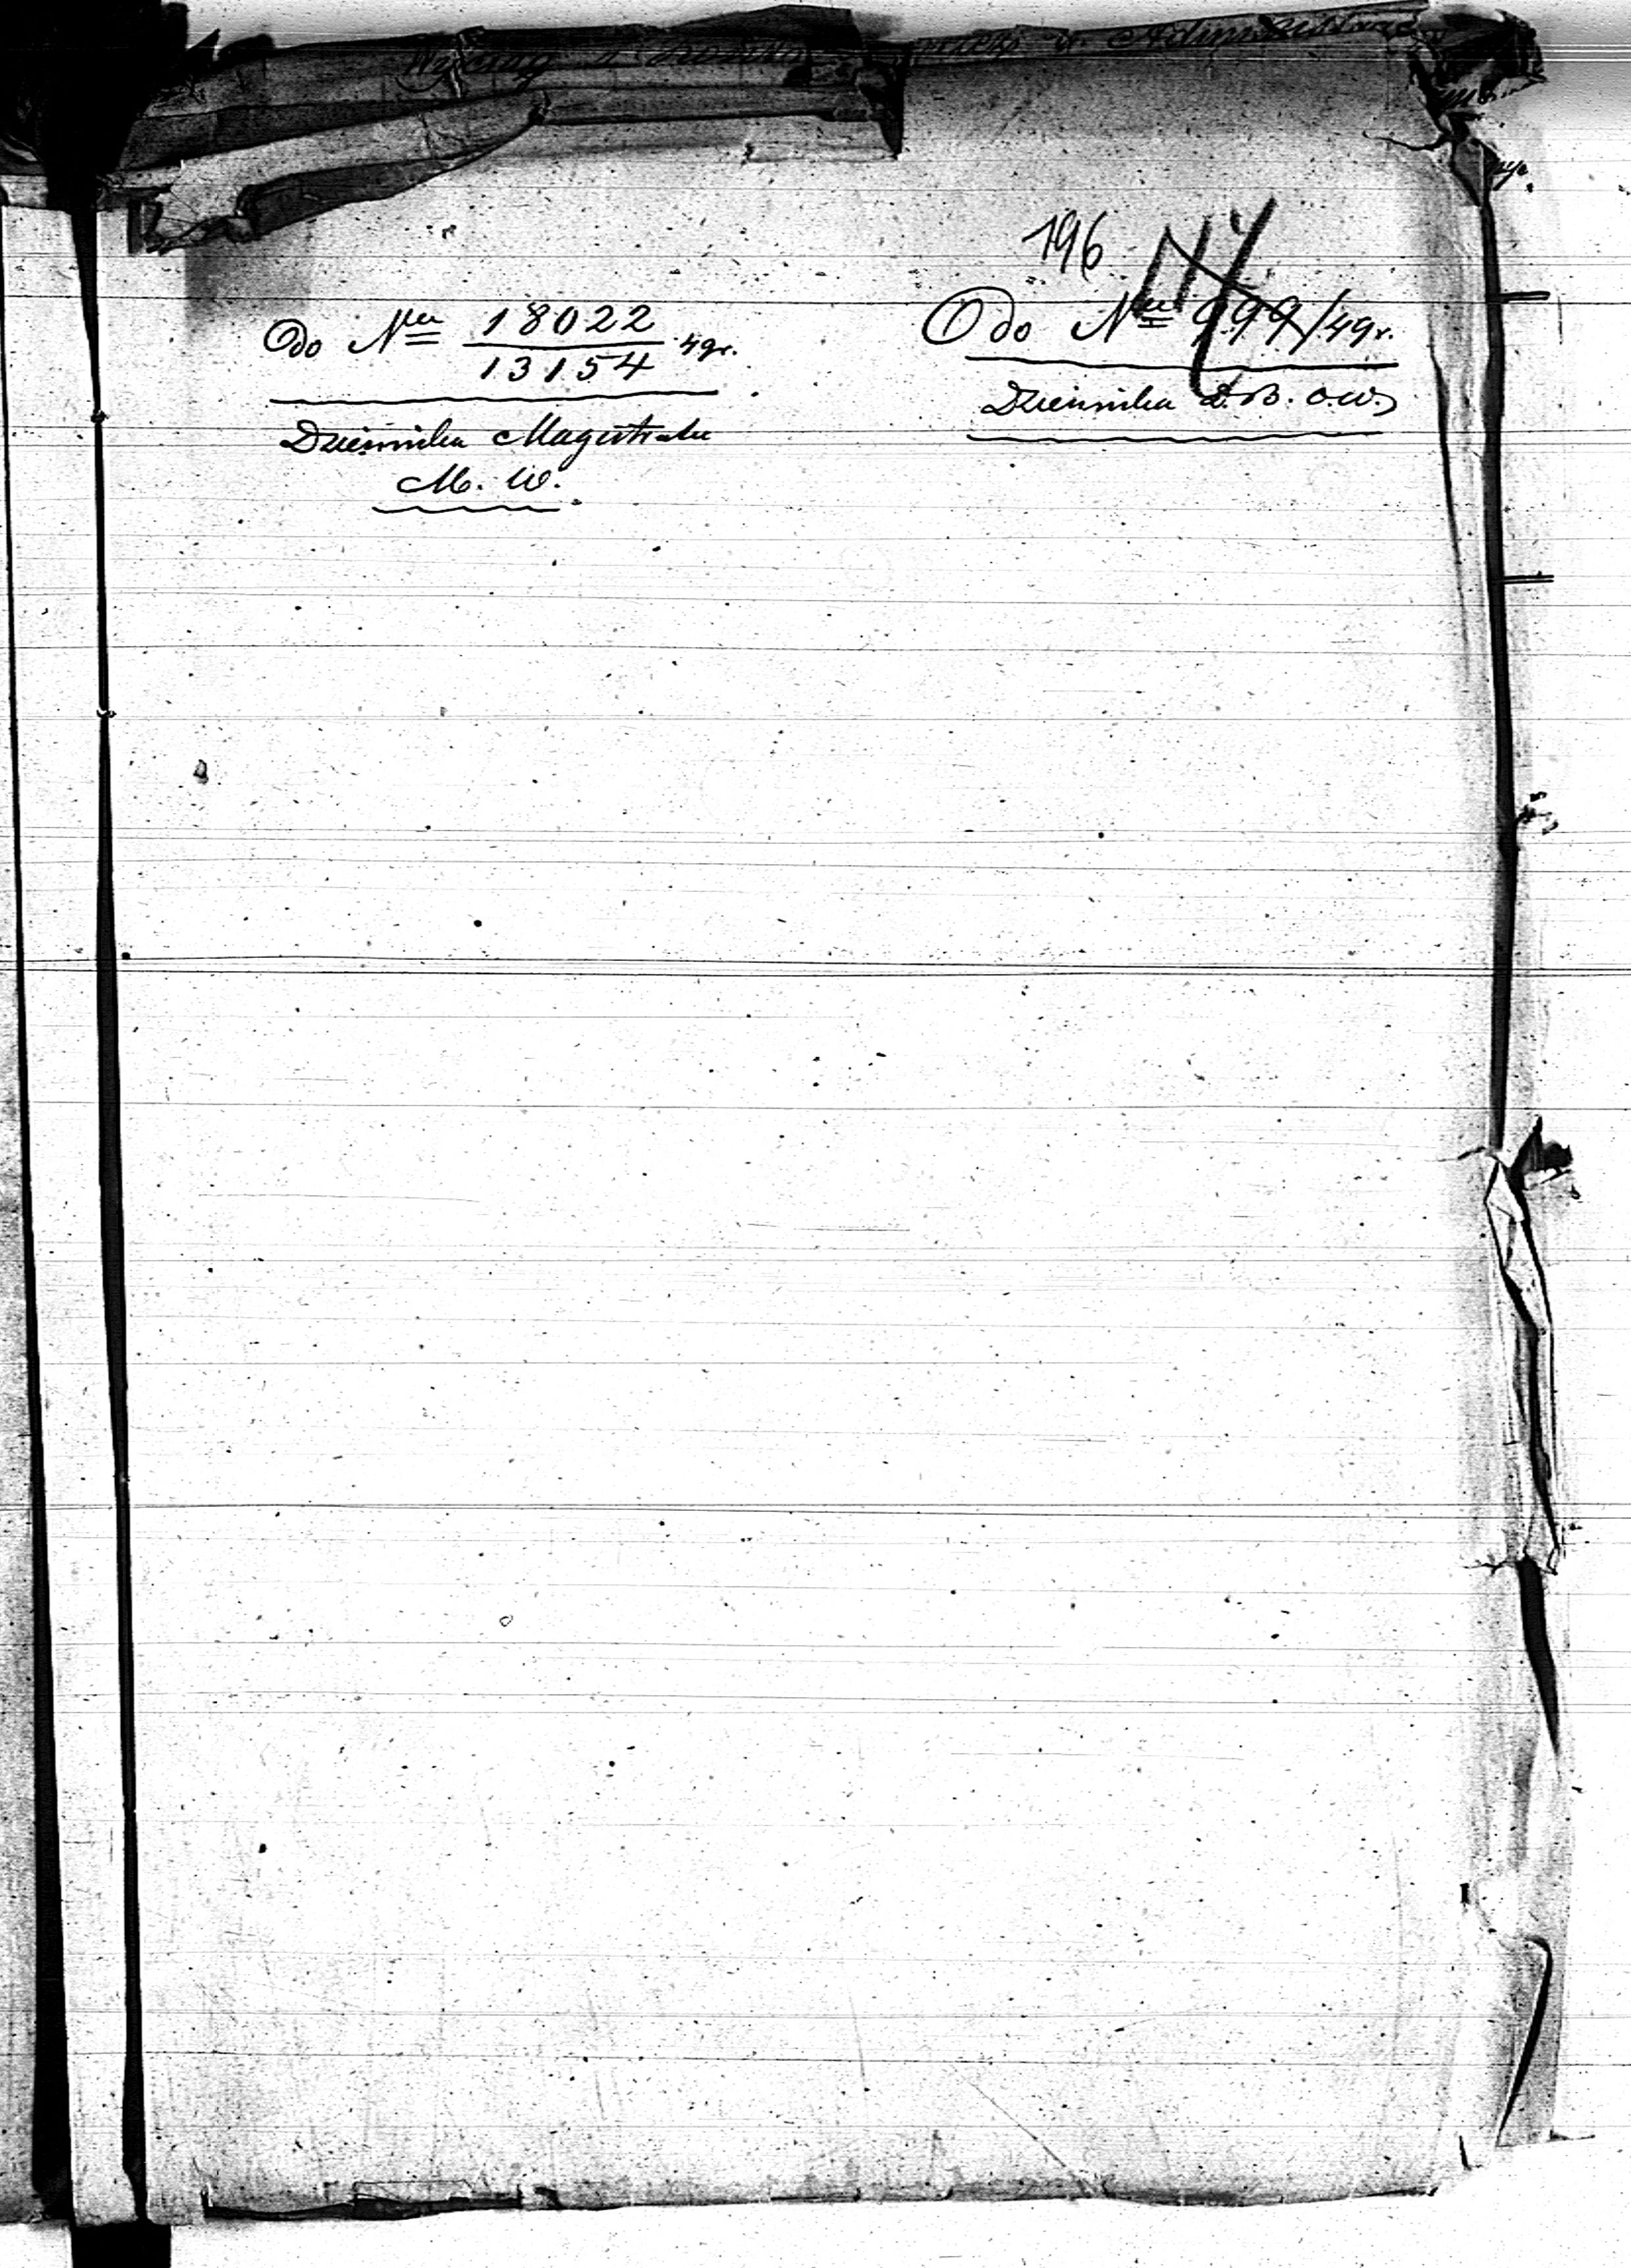 Wyciąg z
196
Odo Nru 18022
13154 49r.
Dziennika Magistratu
M. W.
Odo Nru 999/49r.
Dziennika D. B. O. W.